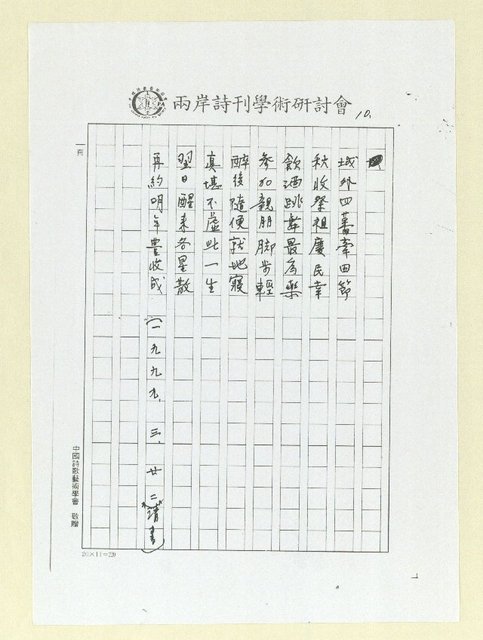 兩岸詩刊學術研討會
10.
城外四暮牽田節
秋收祭祖慶民幸
飲酒跳舞最為樂
參加親朋脚步輕
醉後隨便就地寢
真堪不虛此一生
翌日醒來各星散
再約明年豐收成 (一九九九.三.廿二清書)
中國詩歌藝術學會 敬贈
20×11=220